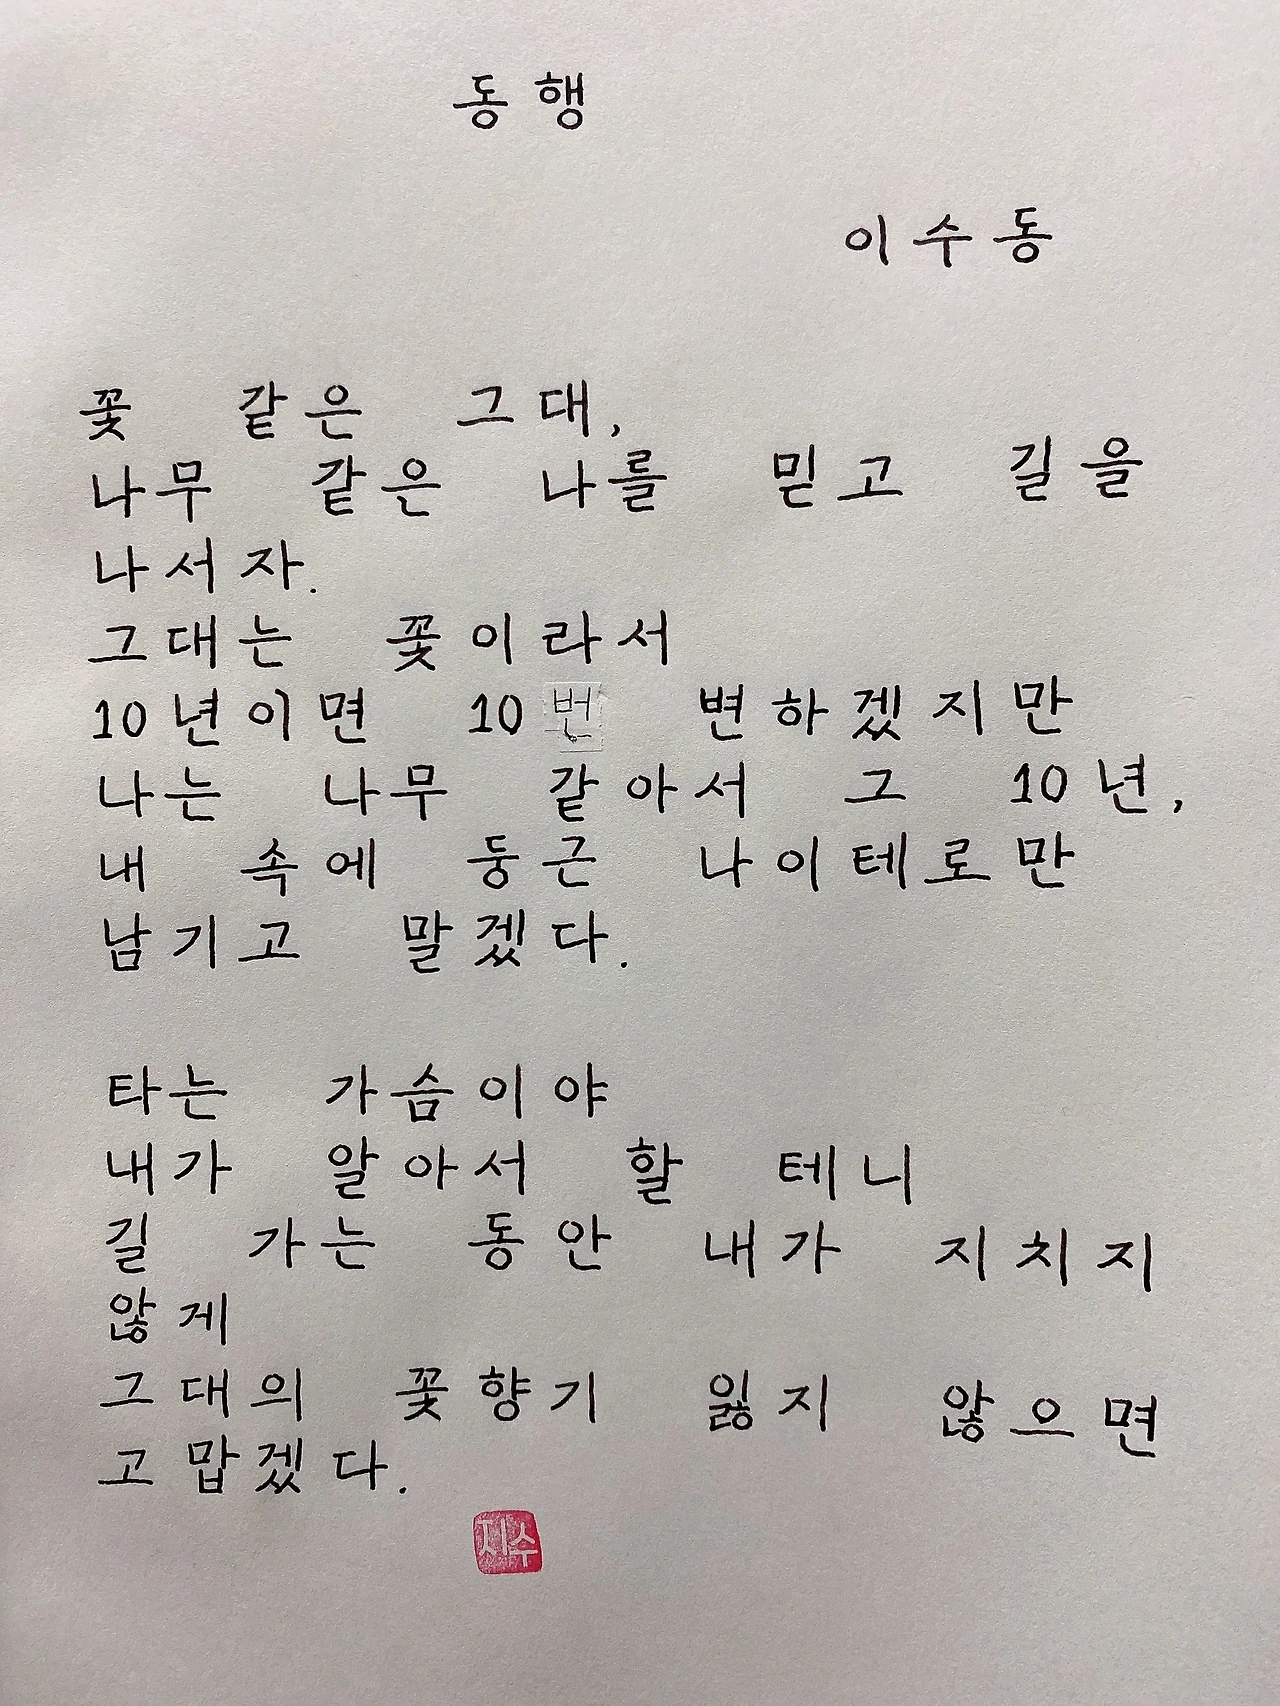 동행
이수동
꽃 같은 그대,
나무 같은 나를 믿고 길을
나서자.
그대는 꽃이라서
10년이면 10번 변하겠지만
나는 나무 같아서 그 10년,
내 속에 둥근 나이테로만
남기고 말겠다.
타는 가슴이야
내가 알아서 할 테니
길 가는 동안 내가 지치지
않게
그대의 꽃향기 잃지 않으면
고맙겠다.
지수